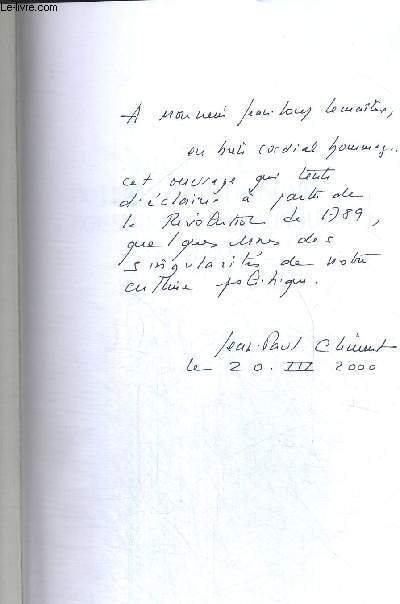 Le-livre.com
A Monsieur Jean-Loup Lemaître,
en très cordial hommage,
cet ouvrage qui tente
d'éclairer à partir de
la Révolution de 1789,
quelques unes des
singularités de notre
culture politique.
Jean-Paul Clément
le 20. III 2000